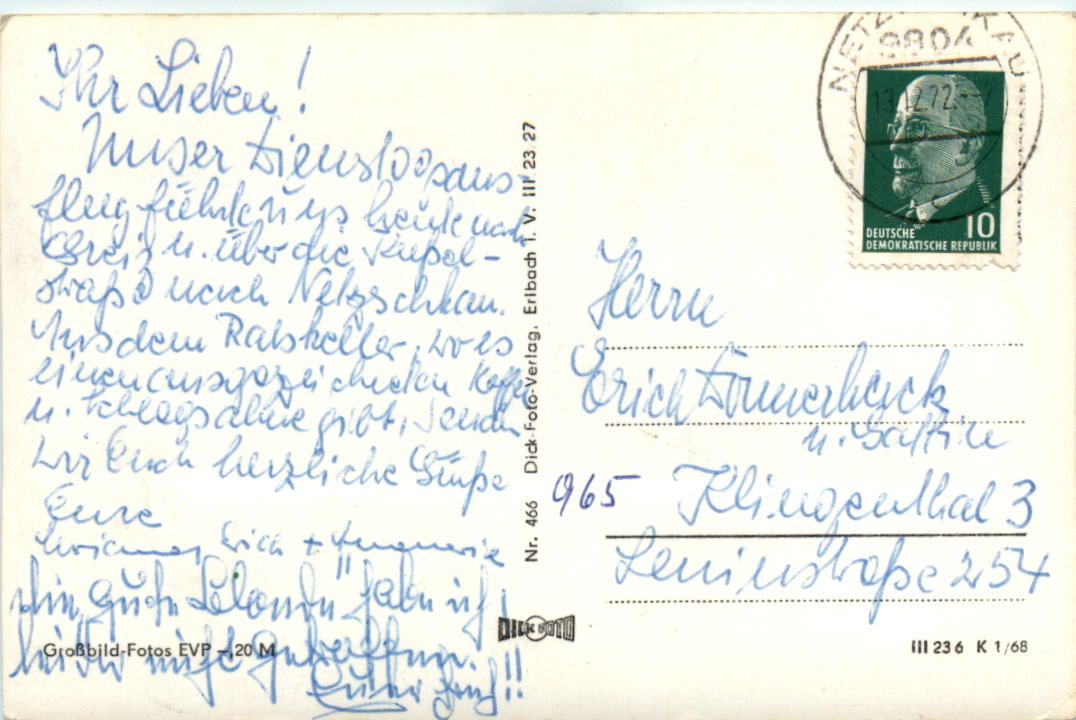 Ihr Lieben!
Unser Dienstags aus-
flug führte uns heute nach
Greiz u. über die
straße nach Netzschkau.
Aus dem Ratskeller, wo es
einen ausgezeichneten Kaffee
u. Schlagsahne gibt, senden
wir Euch herzliche Grüße
Eure
Erich +
habe ich
leider nicht getroffen.
Euer !!
Großbild-Fotos EVP –,20 M
Nr. 466 Dick-Foto-Verlag, Erlbach i. V. III 23 27
DICK FOTO
9804
13.12.72
10
DEUTSCHE
DEMOKRATISCHE REPUBLIK
Herrn
Erich
u. Gattin
965 Klingenthal 3
Leninstraße 254
III 23 6 K 1/68